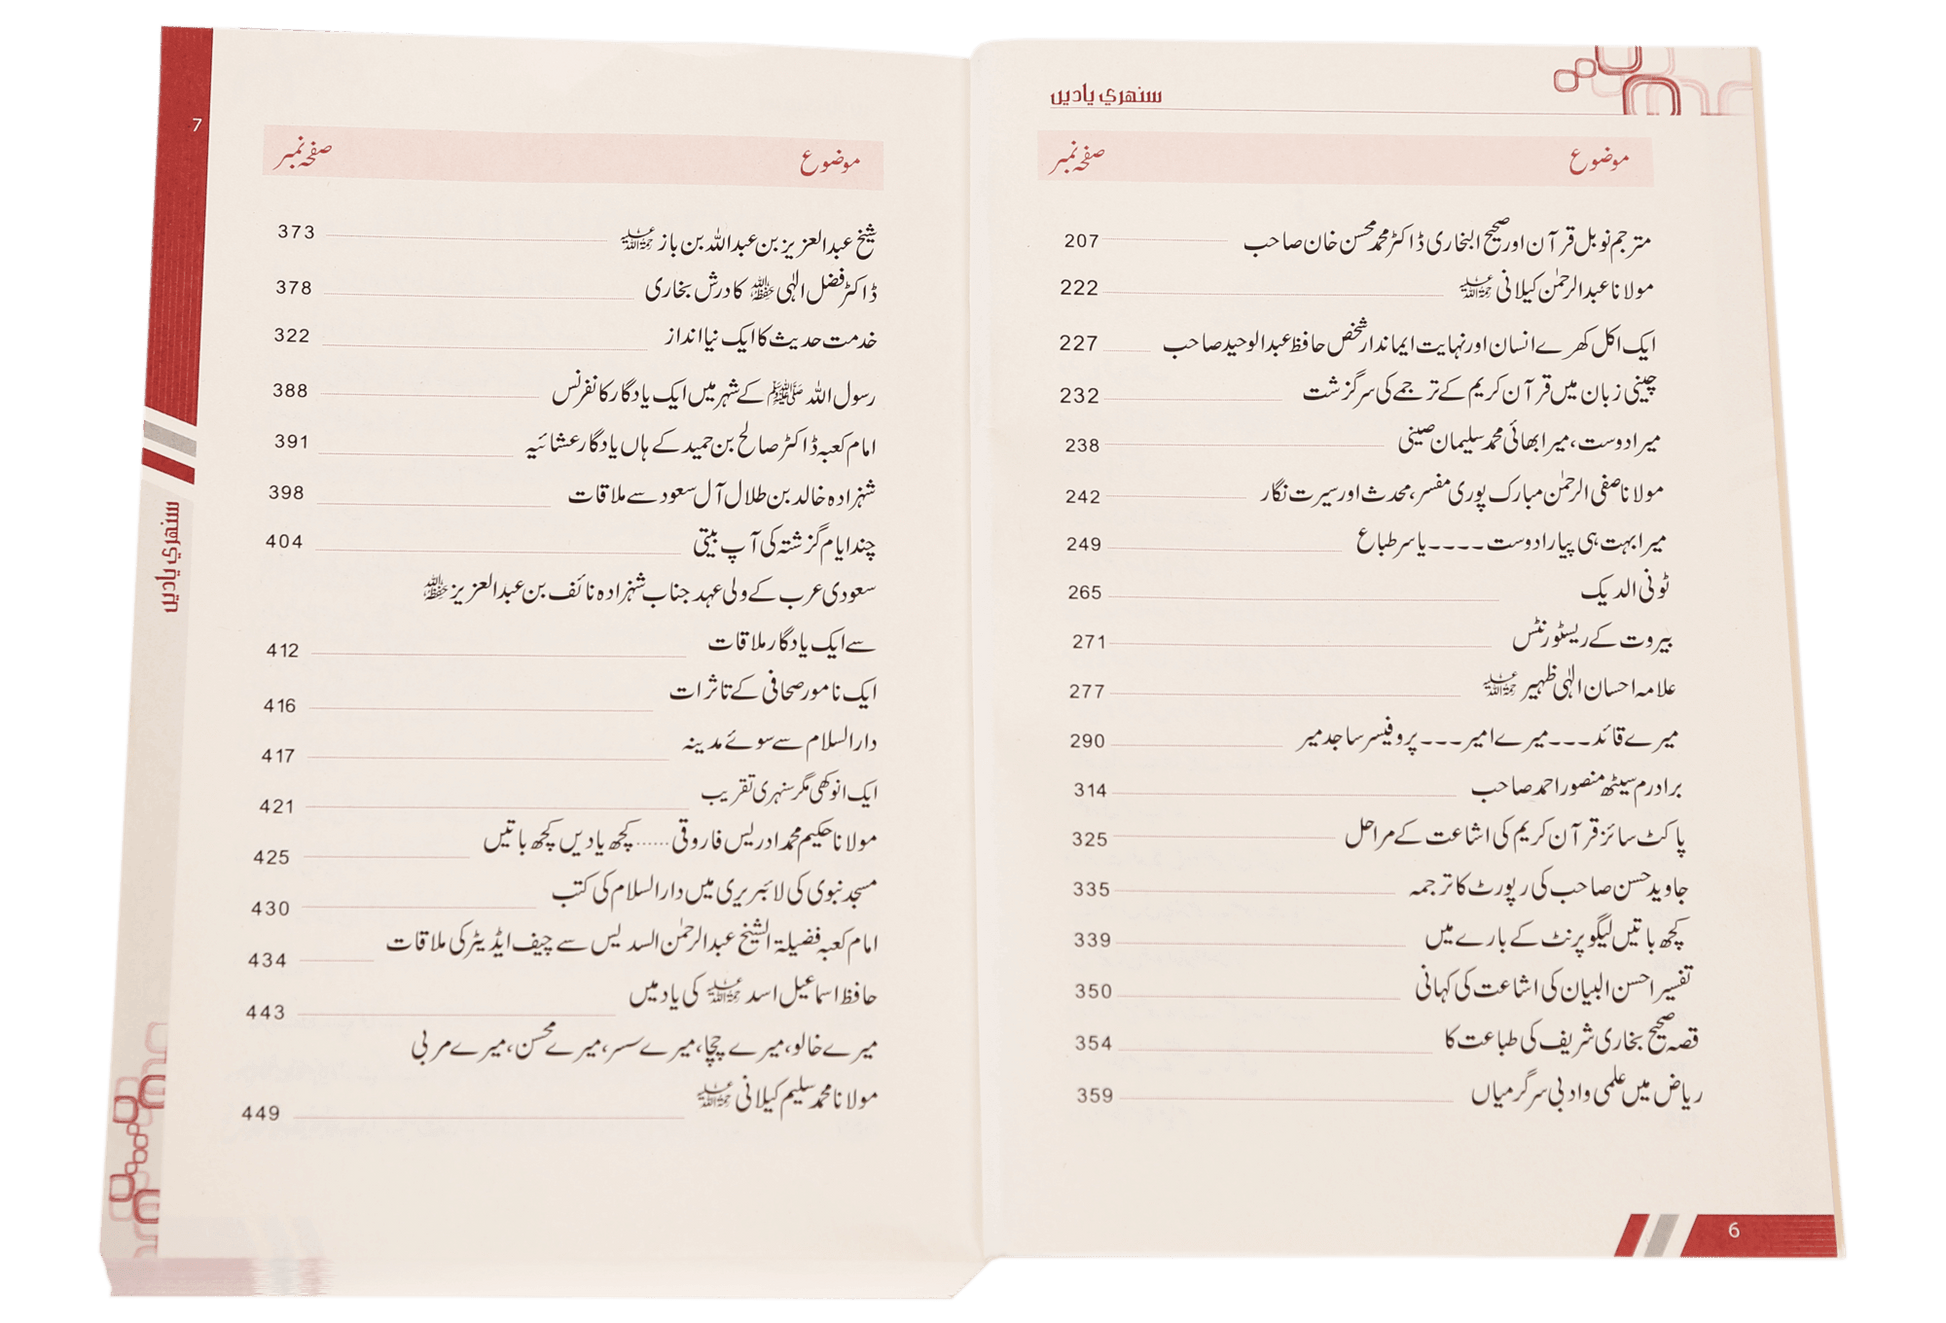 سنهري يادين
موضوع صفحہ نمبر
مترجم نوبل قرآن اور صحیح البخاری ڈاکٹر محمد محسن خان صاحب 207
مولانا عبدالرحمٰن کیلانی رحمۃ اللہ علیہ 222
ایک اکل کھرے انسان اور نہایت ایماندار شخص حافظ عبدالوحید صاحب 227
چینی زبان میں قرآن کریم کے ترجمے کی سرگزشت 232
میرا دوست، میرا بھائی محمد سلیمان صینی 238
مولانا صفی الرحمٰن مبارک پوری مفسر، محدث اور سیرت نگار 242
میرا بہت ہی پیارا دوست ۔۔۔۔ یاسر طباع 249
ٹونی الدیک 265
بیروت کے ریسٹورنٹس 271
علامہ احسان الٰہی ظہیر رحمۃ اللہ علیہ 277
میرے قائد ۔۔۔ میرے امیر ۔۔۔ پروفیسر ساجد میر 290
برادرم سیٹھ منصور احمد صاحب 314
پاکٹ سائز قرآن کریم کی اشاعت کے مراحل 325
جاوید حسن صاحب کی رپورٹ کا ترجمہ 335
کچھ باتیں لیگو پرنٹ کے بارے میں 339
تفسیر احسن البیان کی اشاعت کی کہانی 350
قصہ صحیح بخاری شریف کی طباعت کا 354
ریاض میں علمی و ادبی سرگرمیاں 359
6
7
سنهري يادين
موضوع صفحہ نمبر
شیخ عبدالعزیز بن عبداللہ بن باز رحمۃ اللہ علیہ 373
ڈاکٹر فضل الٰہی حفظہ اللہ کا درش بخاری 378
خدمت حدیث کا ایک نیا انداز 322
رسول اللہ ﷺ کے شہر میں ایک یادگار کانفرنس 388
امام کعبہ ڈاکٹر صالح بن حمید کے ہاں یادگار عشائیہ 391
شہزادہ خالد بن طلال آل سعود سے ملاقات 398
چند ایام گزشتہ کی آپ بیتی 404
سعودی عرب کے ولی عہد جناب شہزادہ نائف بن عبدالعزیز حفظہ اللہ
سے ایک یادگار ملاقات 412
ایک نامور صحافی کے تاثرات 416
دارالسلام سے سوئے مدینہ 417
ایک انوکھی مگر سنہری تقریب 421
مولانا حکیم محمد ادریس فاروقی ...... کچھ یادیں کچھ باتیں 425
مسجد نبوی کی لائبریری میں دارالسلام کی کتب 430
امام کعبہ فضیلۃ الشیخ عبدالرحمٰن السدیس سے چیف ایڈیٹر کی ملاقات 434
حافظ اسماعیل اسد رحمۃ اللہ علیہ کی یاد میں 443
میرے خالو، میرے چچا، میرے سسر، میرے محسن، میرے مربی
مولانا محمد سلیم کیلانی رحمۃ اللہ علیہ 449